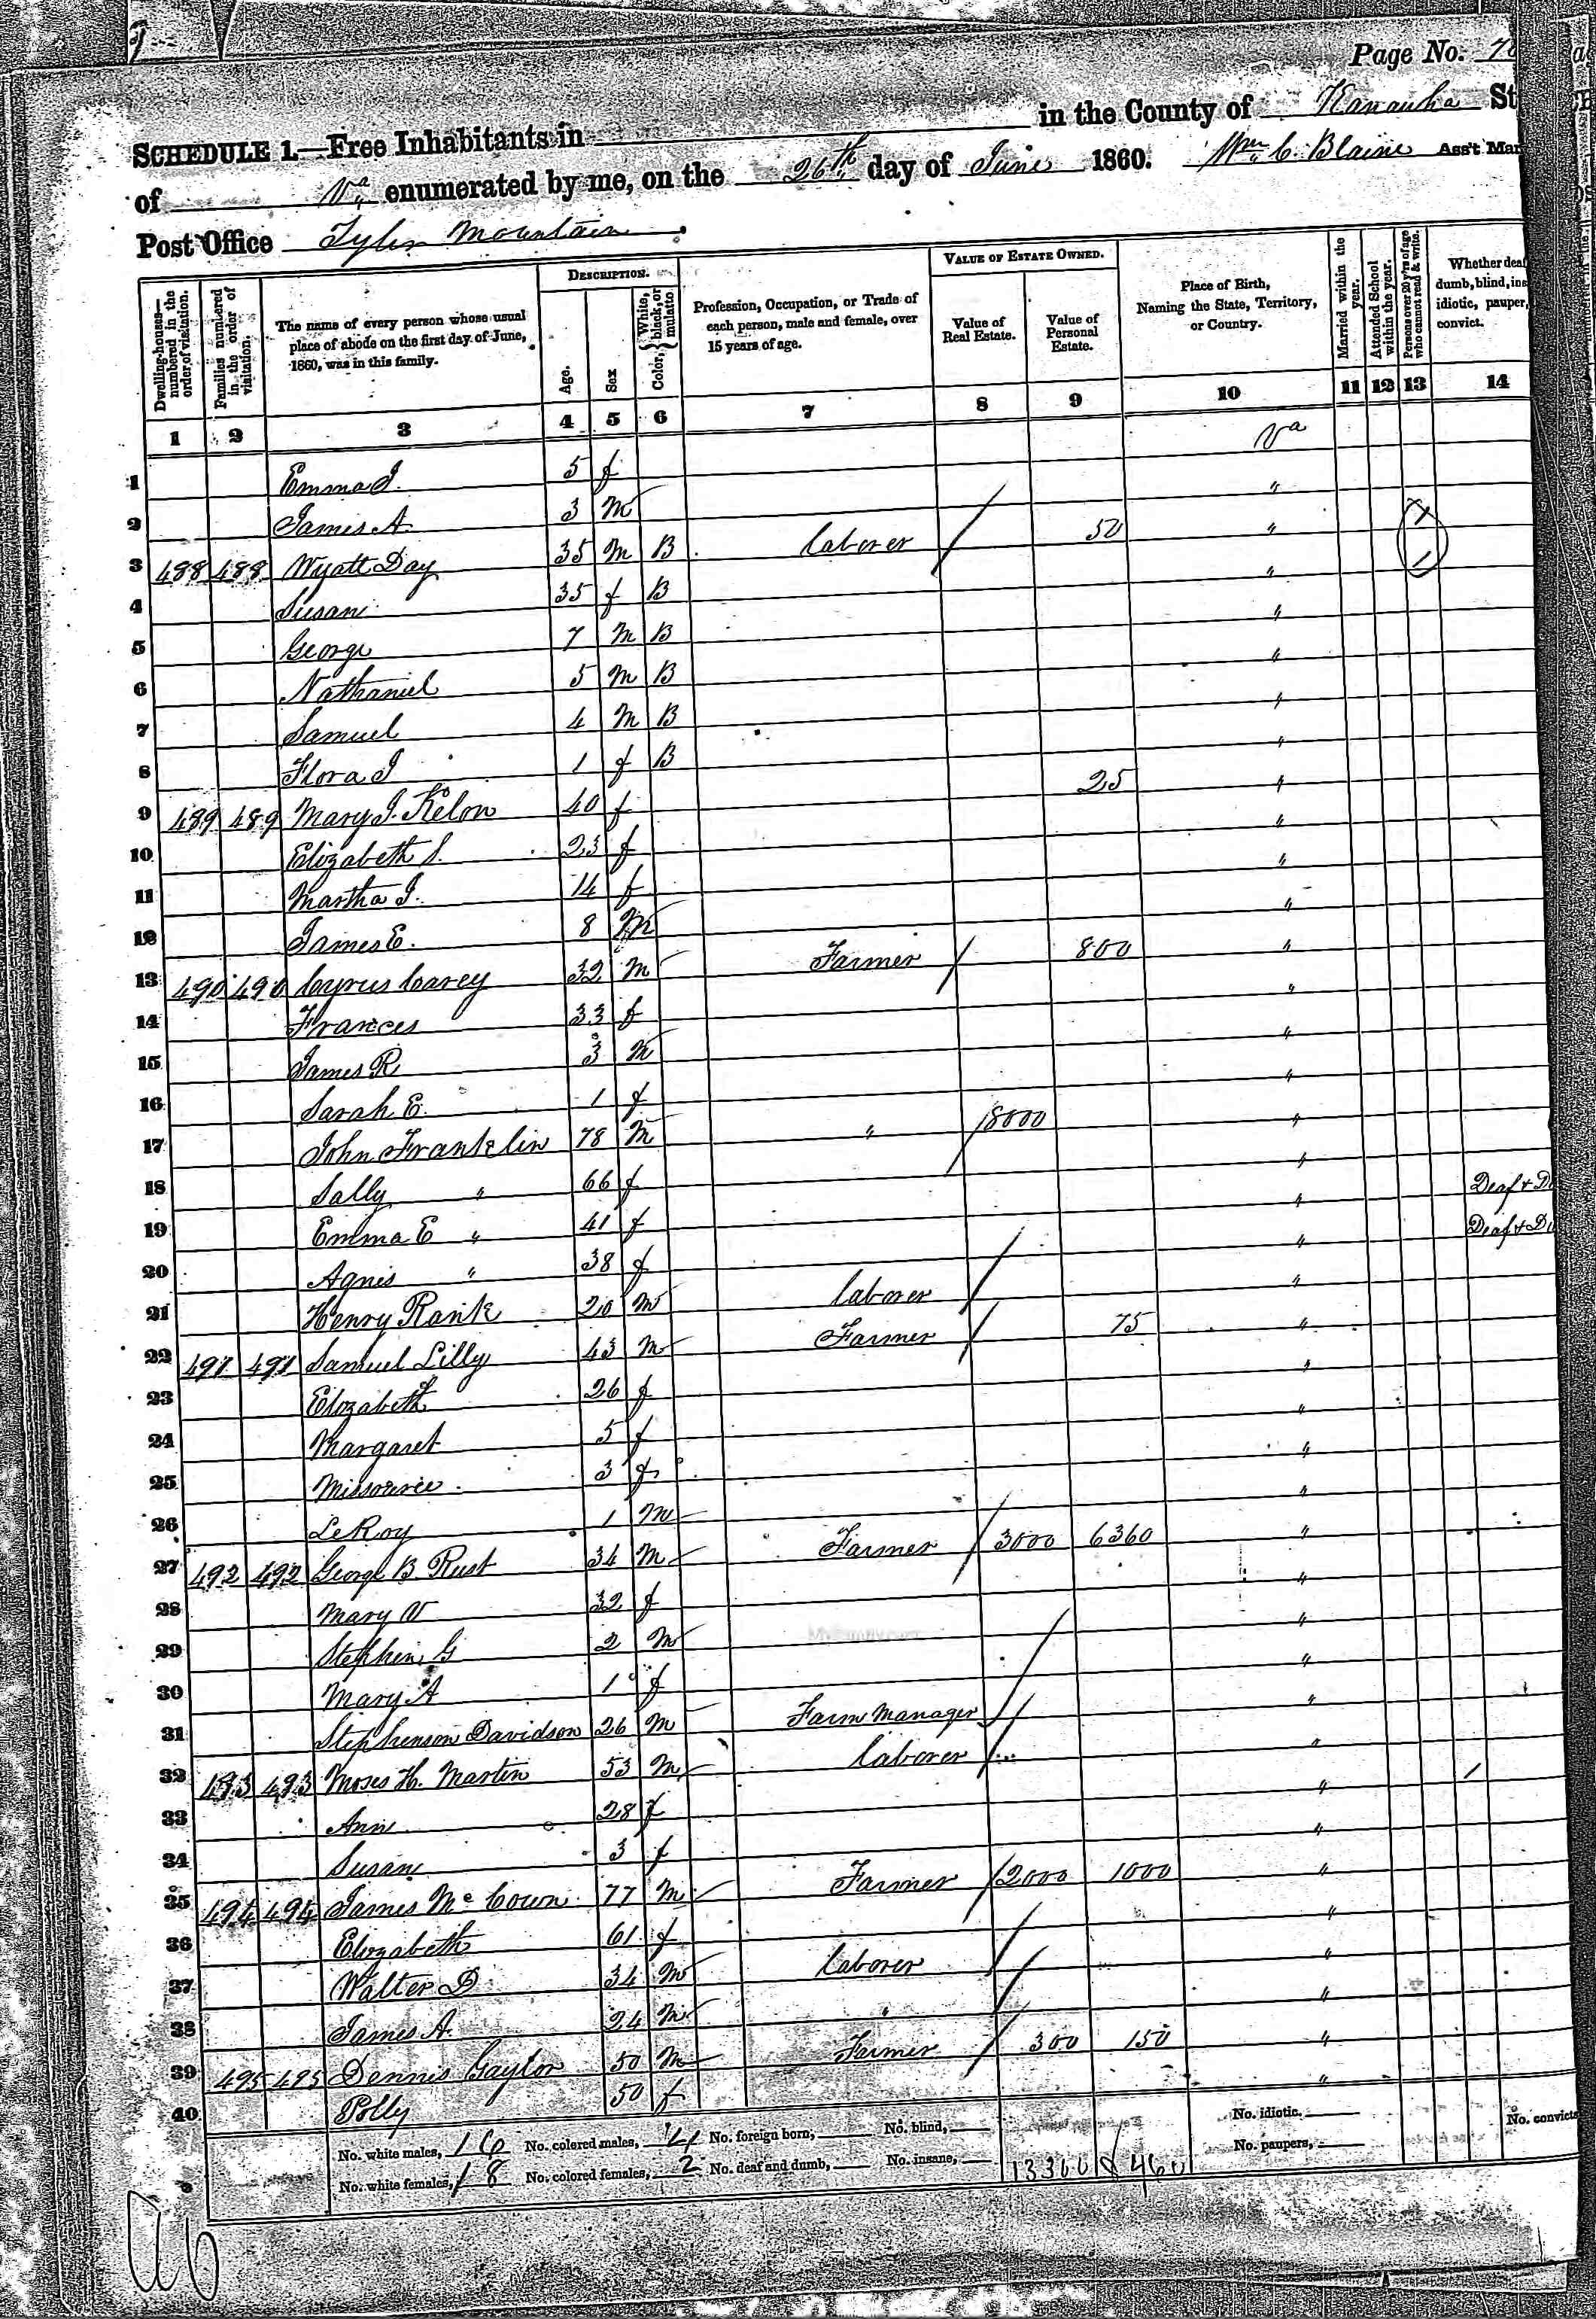 Page No. 78
SCHEDULE 1.—Free Inhabitants in in the County of Kanawha St
of Va enumerated by me, on the 26th day of June 1860. Wm C. Blaine Ass't Mar
Post Office Tyler Mountain
Dwelling-houses—numbered in the order of visitation. Families numbered in the order of visitation. The name of every person whose usual place of abode on the first day of June, 1860, was in this family. DESCRIPTION. Age. Sex Color, White, black, or mulatto. Profession, Occupation, or Trade of each person, male and female, over 15 years of age. VALUE OF ESTATE OWNED. Value of Real Estate. Value of Personal Estate. Place of Birth, Naming the State, Territory, or Country. Married within the year. Attended School within the year. Persons over 20 y'rs of age who cannot read & write. Whether deaf dumb, blind, ins idiotic, pauper, convict.
1 2 3 4 5 6 7 8 9 10 11 12 13 14
1 Emma J. 5 f Va
2 James A. 3 m "
3 488 488 Wyatt Day 35 m B laborer / 50 " /
4 Susan 35 f B " /
5 George 7 m B "
6 Nathaniel 5 m B "
7 Samuel 4 m B "
8 Flora J 1 f B "
9 489 489 Mary J. Kelon 40 f 25 "
10 Elizabeth S. 23 f "
11 Martha J. 14 f "
12 James E. 8 m "
13 490 490 Cyrus Carey 32 m Farmer / 800 "
14 Frances 33 f "
15 James R 3 m "
16 Sarah E. 1 f "
17 John Franklin 78 m " / 8000 "
18 Sally " 66 f "
19 Emma E " 41 f " Deaf & D
20 Agnis " 38 f " Deaf & Du
21 Henry Rank 20 m laborer / "
22 491 491 Samuel Lilly 43 m Farmer / 75 "
23 Elizabeth 26 f "
24 Margaret 5 f "
25 Missourie 3 f "
26 LeRoy 1 m "
27 492 492 George B. Rust 34 m Farmer / 3000 6360 "
28 Mary V 32 f "
29 Stephen G 2 m "
30 Mary A 1 f "
31 Stephenson Davidson 26 m Farm Manager / "
32 493 493 Moses H. Martin 53 m laborer / "
33 Ann 28 f " /
34 Susan 3 f "
35 494 494 James McCown 77 m Farmer / 2000 1000 "
36 Elizabeth 61 f "
37 Walter D 34 m laborer / "
38 James A. 24 m " / "
39 495 495 Dennis Gaylor 50 m Farmer / 300 150 "
40 Polly 50 f "
No. white males, 16 No. colored males, 4 No. foreign born, No. blind, No. idiotic. No. convicts
No. white females, 18 No. colored females, 2 No. deaf and dumb, No. insane, 13300 8460 No. paupers,